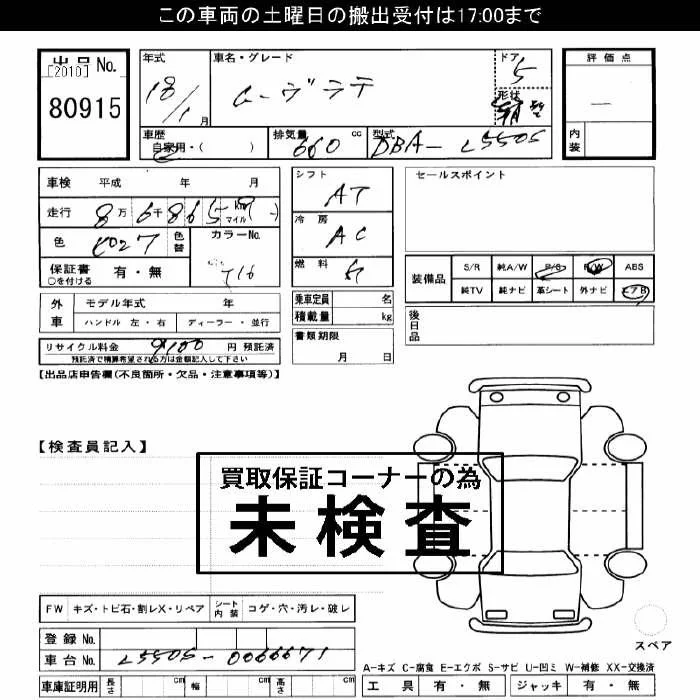 この車両の土曜日の搬出受付は17:00まで
出品No.
[2010]
80915
年式
18/1月
車名・グレード
ムーヴラテ
ドア
5
形状
評価点
内装
車歴
自家用・( )
排気量
660 cc
型式
DBA-L550S
車検 平成 年 月
走行 8万6千865 km マイル
色
色替
カラーNo.
T16
保証書 有・無
○を付ける
シフト
AT
冷房
AC
燃料
ガ
乗車定員 名
積載量 kg
書類期限
月 日
セールスポイント
装備品
S/R 純A/W P/S P/W ABS
純TV 純ナビ 革シート 外ナビ エアB
後日品
外車
モデル年式 年
ハンドル 左・右 ディーラー・並行
リサイクル料金 9100 円 預託済
預託済で精算希望される方は金額記入して下さい
【出品店申告欄(不良箇所・欠品・注意事項等)】
【検査員記入】
買取保証コーナーの為
未検査
FW キズ・トビ石・割レX・リペア シート内装 コゲ・穴・汚レ・破レ
登録No.
車台No. L550S-0066671
車庫証明用 長さ cm 幅 cm 高さ cm
スペア
A-キズ C-腐食 E-エクボ S-サビ U-凹ミ W-補修 XX-交換済
工具 有・無 ジャッキ 有・無